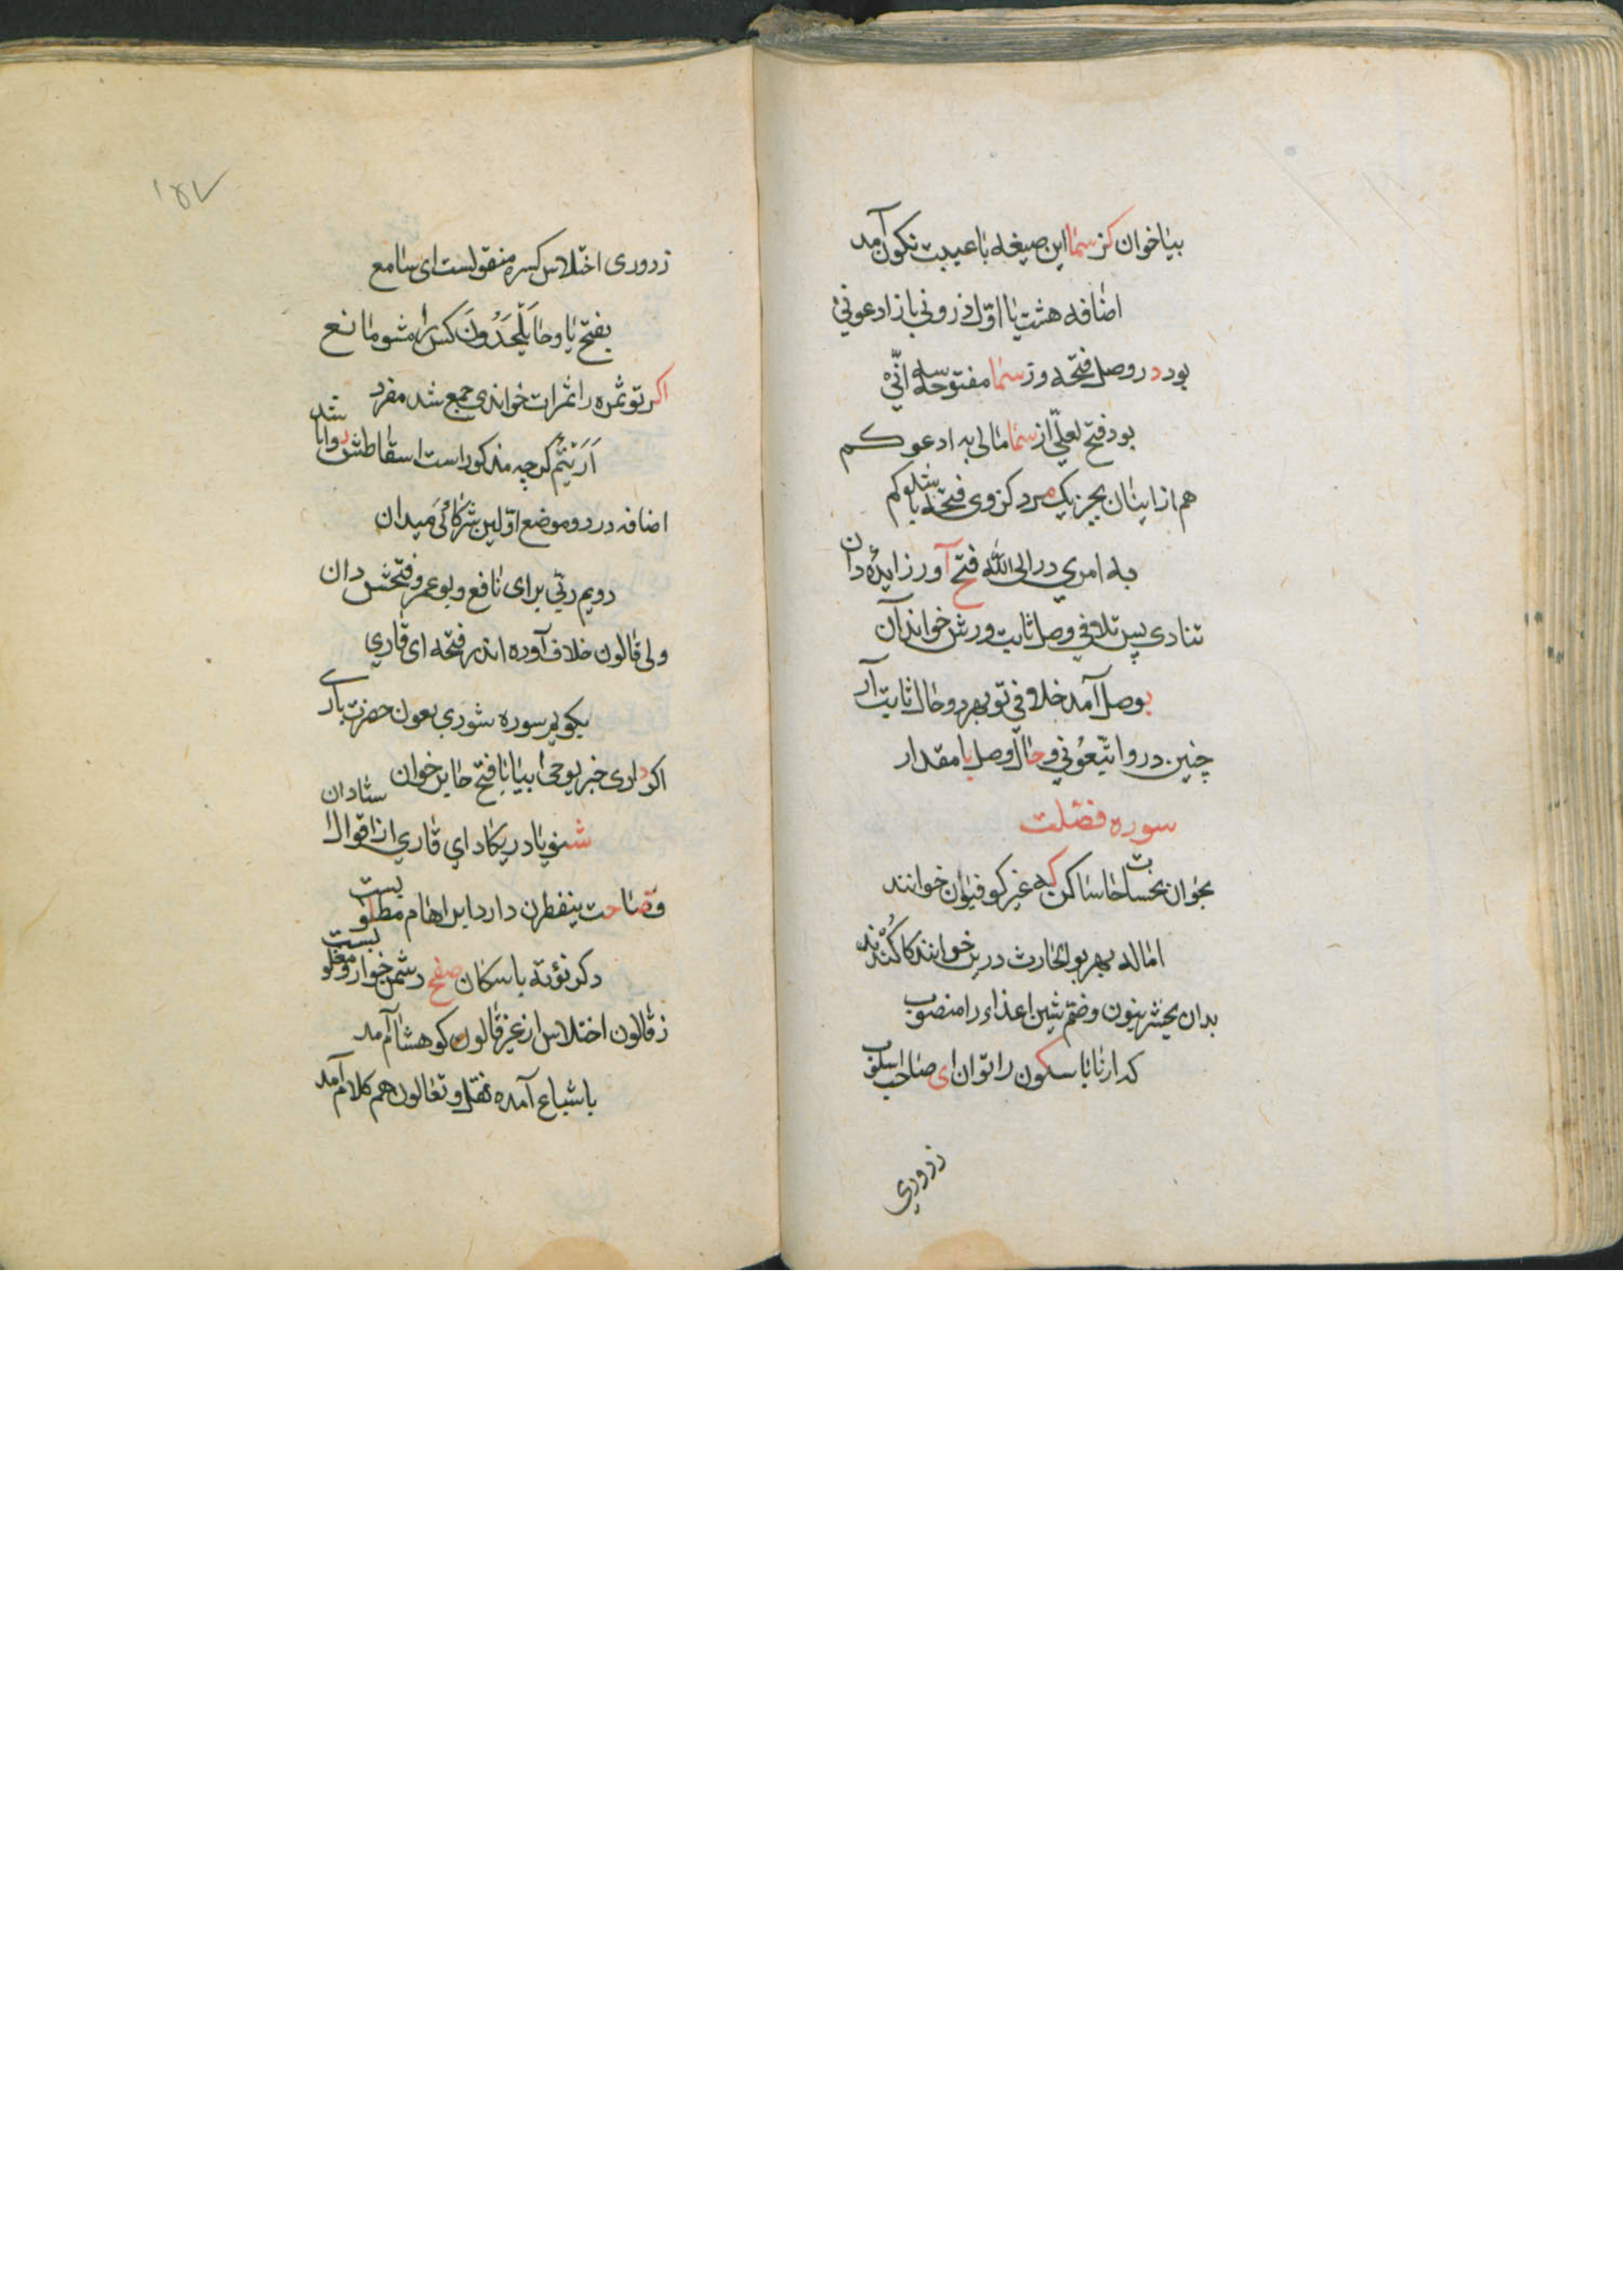 بیاخوان کز سما این صیغه با عیبت نکون آمد
اضافه هشت یا اول ذرونی باز ادعونی
بود در وصل فتحه وز سما مفتوحه سه انی
بود فتح لعلی از سما مالی به ادعوکم
هم از ایشان بجز یک مرد کز وی فتحه یا شد کم
به امری در الی الله فتح آور زایده دان
تنادی پس تلاقی وصل ثابت ورش خواند آن
بوصل آمد خلافی تو بهر دو حال ثابت آر
چنین در وا تبعونی و حال وصل با مقدار
سوره فصلت
بخوان نحسات حا ساکن که غیر کوفیون خوانند
اماله بهر بو الحارث درین خوانند کا کثرند
بدان یحشر بنون و ضم شین اعداء را منصوب
که ارنا با سکون را توان ای صاحب اسلوب
زدوری
۱۵۷
زدوری اختلاس کسره منقولست ای سامع
بفتح یا و حا یلحدون کس را مشو مانع
اکر تو ثمره را ثمرات خواندی جمع شد مفرد
اریتم کرچه مذکور است اسقاطش روایا شد
اضافه در دو موضع اولین شرکائی میدان
دویم ربی برای نافع و بو عمرو فتحش دان
ولی قالون خلاف آورده اند فتحه ای قاری
بکویم سوره شوری بعون حضرت باری
اکر داری خبر یوحی بیا با فتح حا برخوان
شنو یا در یکاد ای قاری از اقوال استادان
وصاحت ینفطرن دارد ابراهام مطلوبست
دکر نؤته باسکان صفح دشمن خوار و مغلوبست
زقالون اختلاس از غیر قالون کو هشام آمد
باشباع آمده نقل و تفالون هم کلام آمد